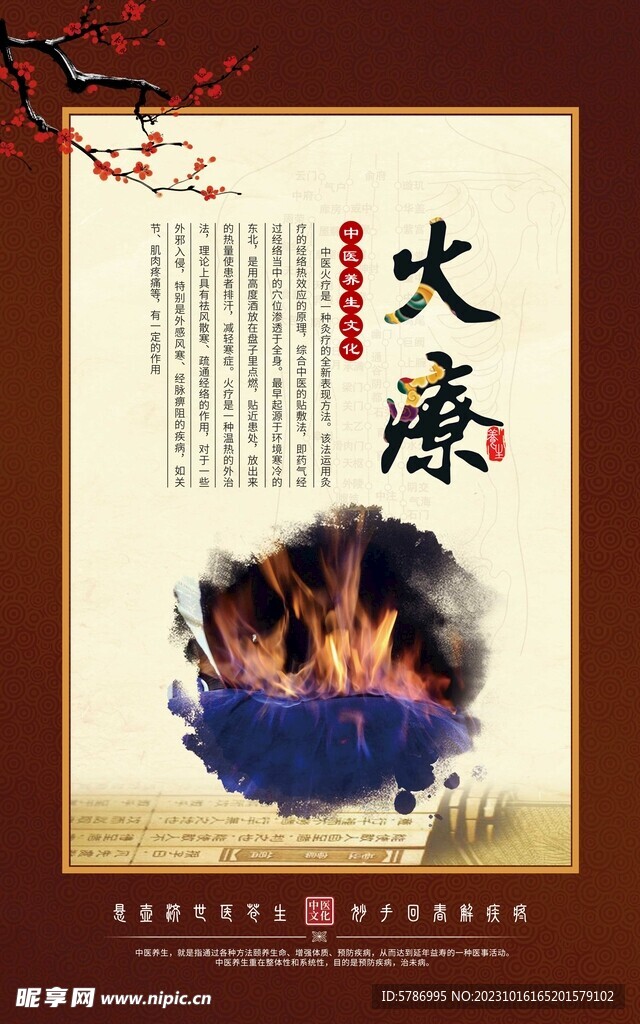 火療
养生
中医养生文化
中医火疗是一种灸疗的全新表现方法。该法运用灸
疗的经络热效应的原理，综合中医的贴敷法，即药气经
过经络当中的穴位渗透于全身。最早起源于环境寒冷的
东北，是用高度酒放在盘子里点燃，贴近患处，放出来
的热量使患者排汗，减轻寒症。火疗是一种温热的外治
法，理论上具有祛风散寒、疏通经络的作用，对于一些
外邪入侵，特别是外感风寒、经脉痹阻的疾病，如关
节、肌肉疼痛等，有一定的作用
悬壶济世医苍生
中医
文化
妙手回春解疾疼
中医养生，就是指通过各种方法颐养生命、增强体质、预防疾病，从而达到延年益寿的一种医事活动。
中医养生重在整体性和系统性，目的是预防疾病，治未病。
昵享网 www.nipic.cn
ID:5786995 NO:20231016165201579102